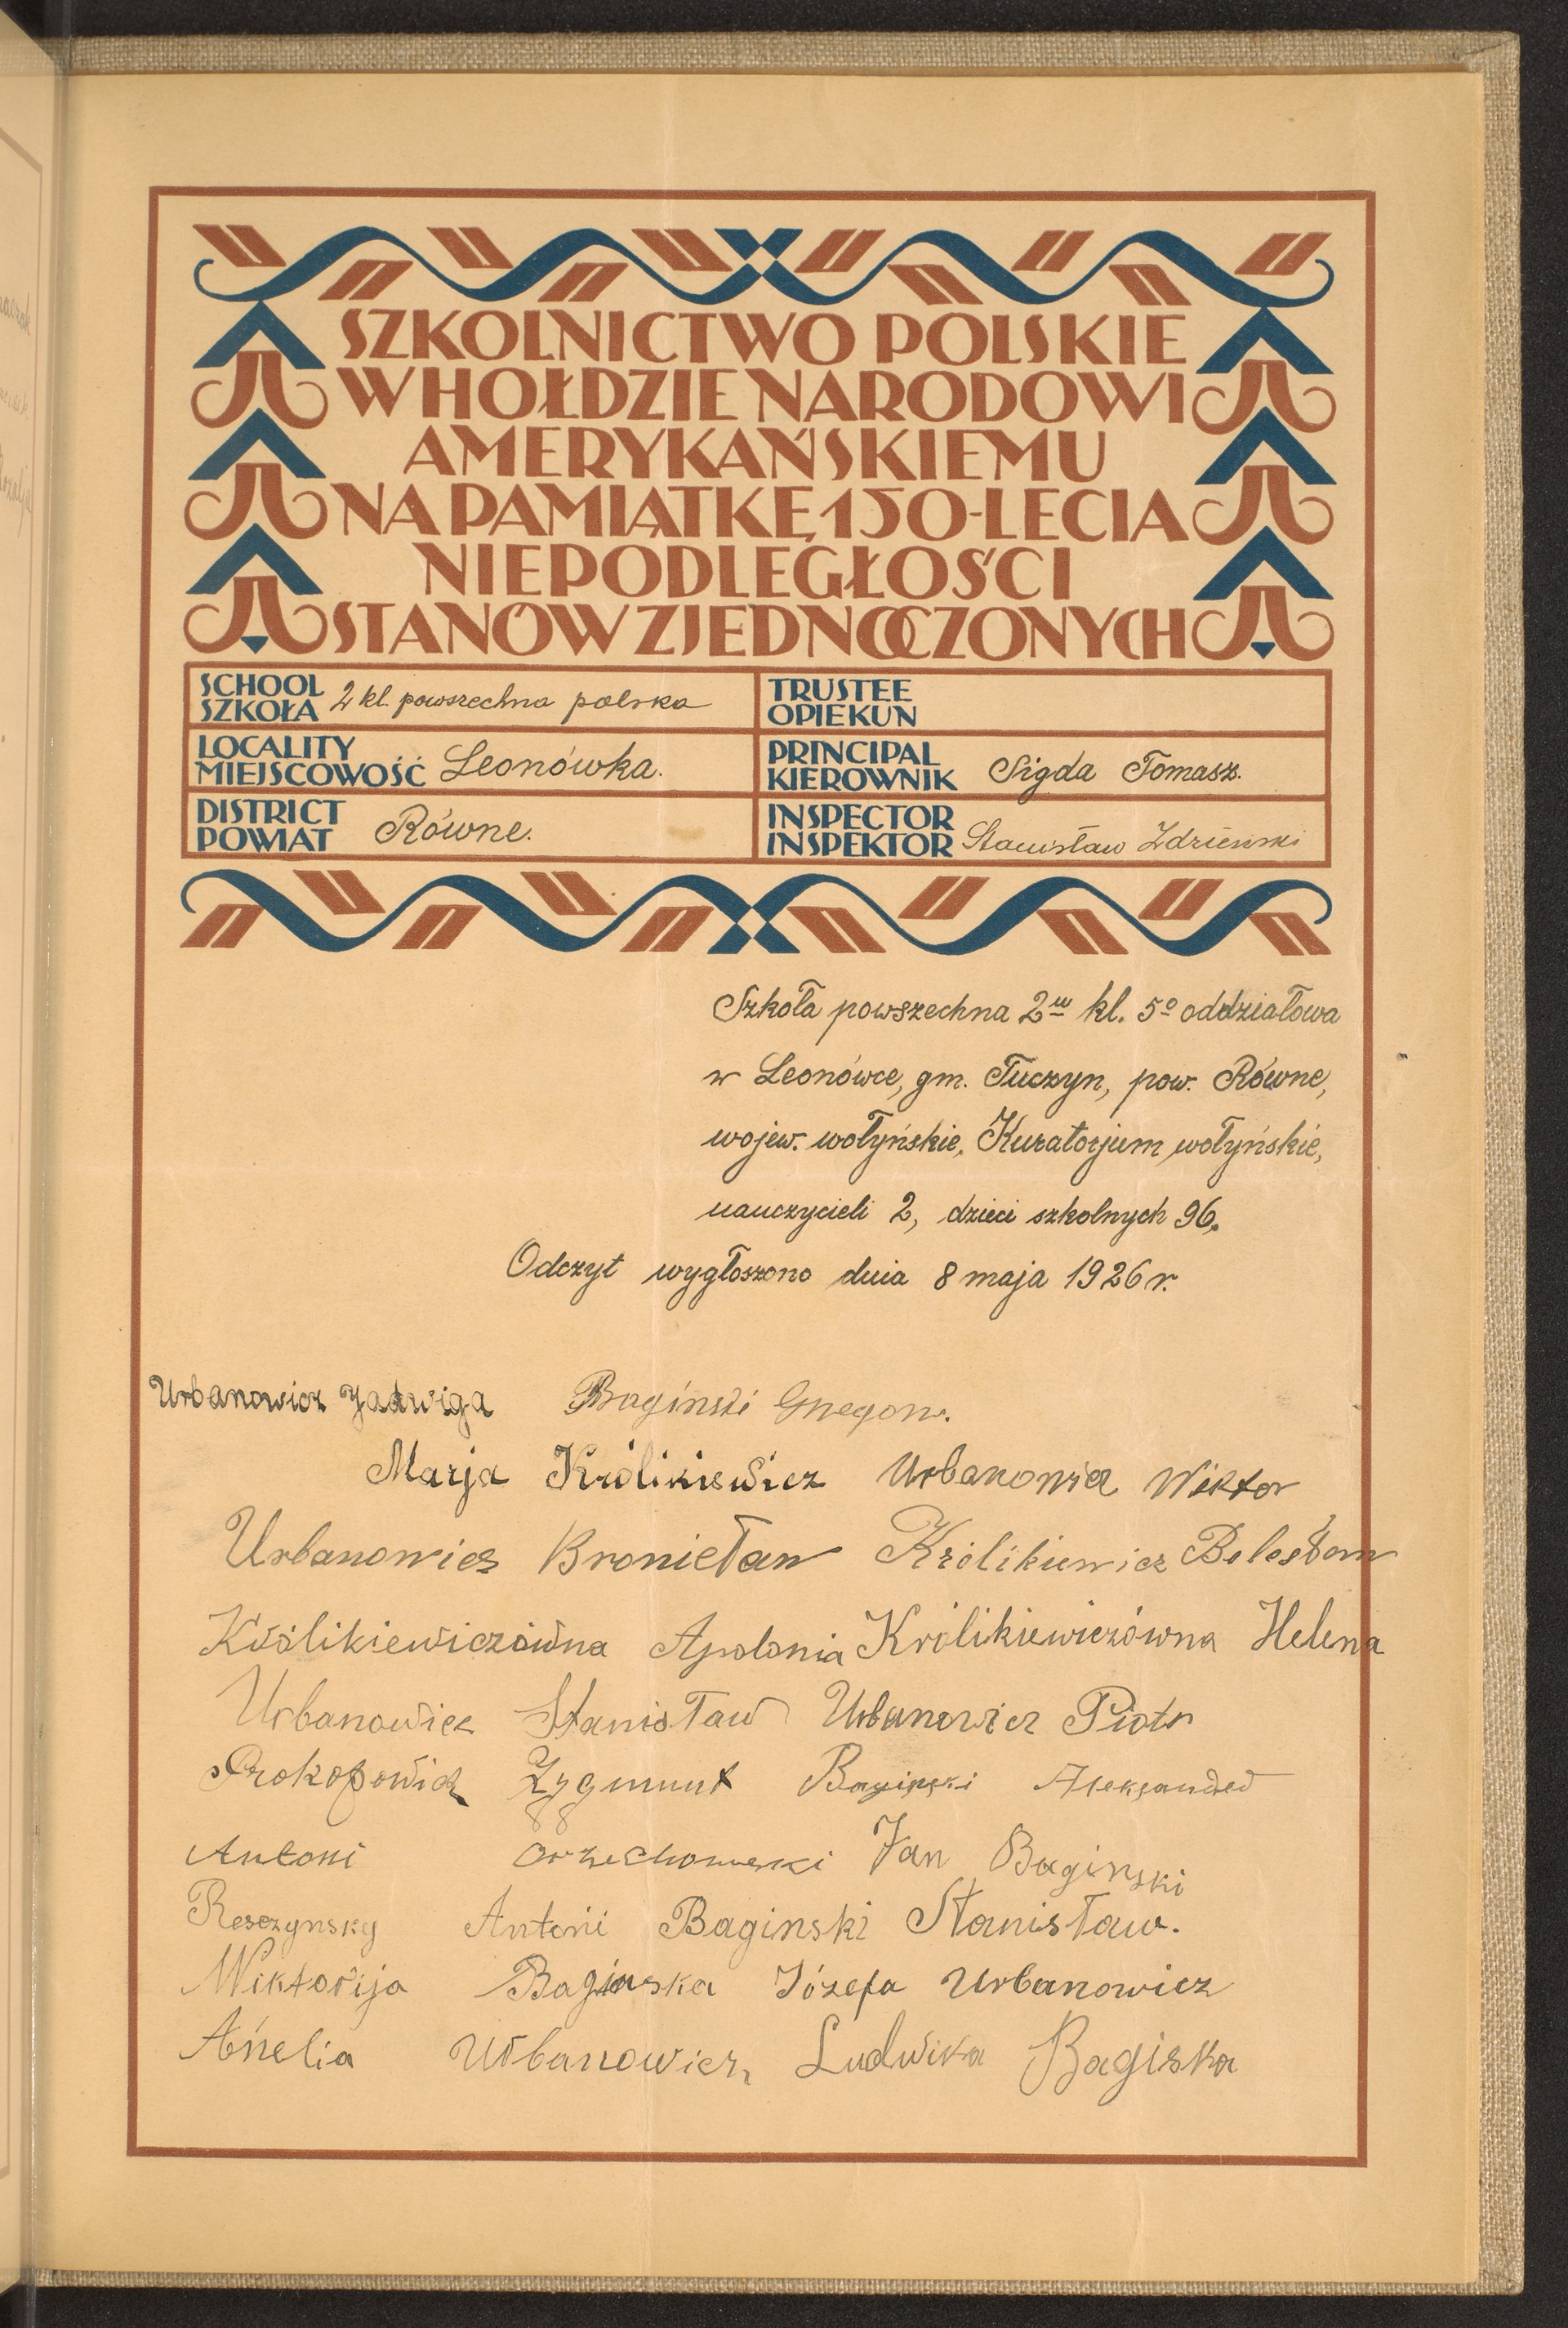 SZKOLNICTWO POLSKIE
W HOŁDZIE NARODOWI
AMERYKAŃSKIEMU
NA PAMIĄTKĘ 150-LECIA
NIEPODLEGŁOŚCI
STANÓW ZJEDNOCZONYCH
SCHOOL
SZKOŁA 2 kl. powszechna polska
TRUSTEE
OPIEKUN
LOCALITY
MIEJSCOWOŚĆ Leonówka.
PRINCIPAL
KIEROWNIK Sigda Tomasz.
DISTRICT
POWIAT Równe.
INSPECTOR
INSPEKTOR Stanisław
Szkoła powszechna 2u kl. 5o oddziałowa
w Leonówce, gm. Tuczyn, pow. Równe,
wojew. wołyńskie, Kuratorjum wołyńskie,
nauczycieli 2, dzieci szkolnych 96.
Odczyt wygłoszono dnia 8 maja 1926 r.
Urbanowicz Jadwiga Bagiński
Marja Królikiewicz Urbanowicz Wiktor
Urbanowicz Bronieław Królikiewicz Bolesław
Królikiewiczówna Apolonia Królikiewiczówna Helena
Urbanowicz Stanisław Urbanowicz Piotr
Prokopowicz Zygmunt Baginski Aleksander
Antoni Orzechowski Jan Baginski
Resczynsky Antoni Baginski Stanisław.
Wiktorija Baginska Józefa Urbanowicz
Anelia Urbanowicz, Ludwika Bagiska